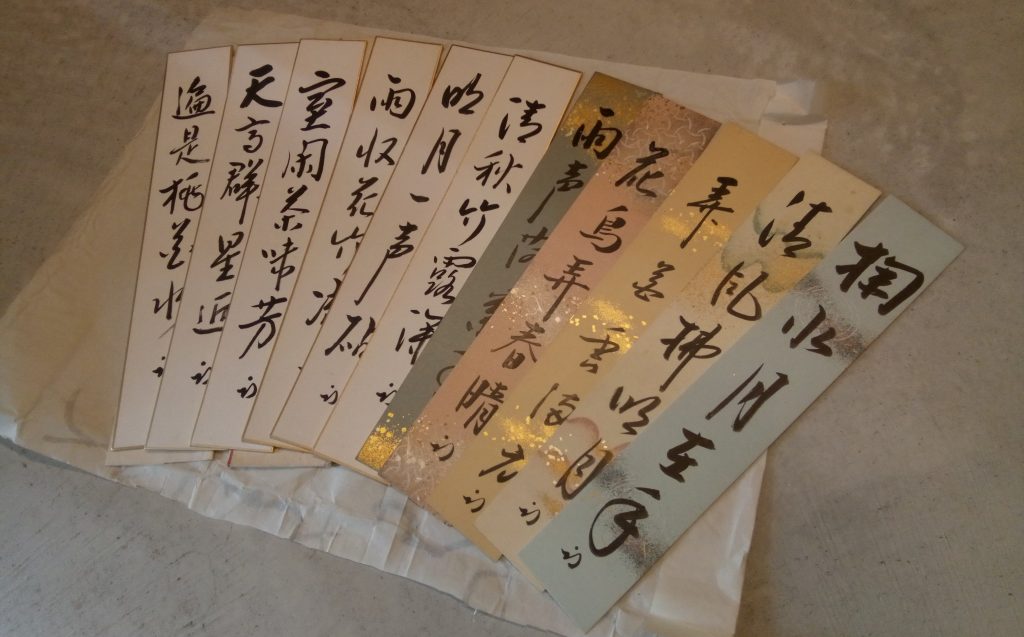 掬水月在手
清風拂明月
弄花香満衣
花鳥弄春晴
雨声
清秋竹露深
明月一声砧
雨収花竹涼
室閑茶味芳
天高群星近
遍是桃花水